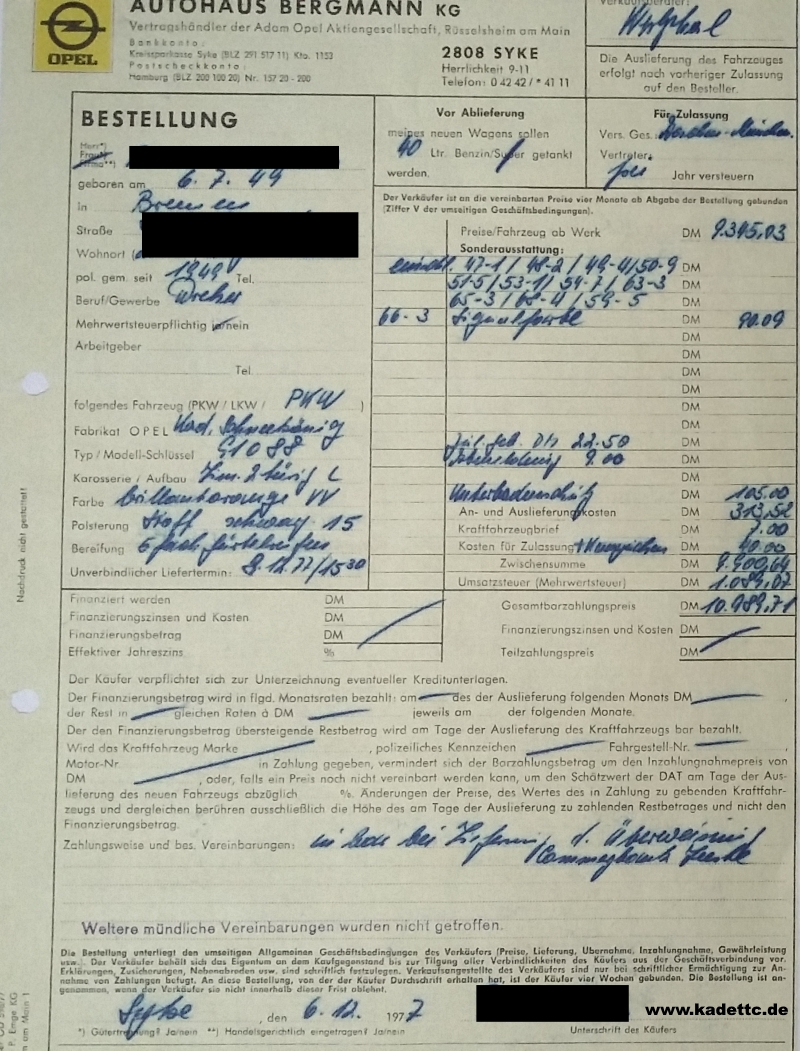 AUTOHAUS BERGMANN KG
Vertragshändler der Adam Opel Aktiengesellschaft, Rüsselsheim am Main
OPEL
Bankkonto:
Kreissparkasse Syke (BLZ 291 517 11) Kto. 1153
Postscheckkonto:
Hamburg (BLZ 200 100 20) Nr. 157 20 - 200
2808 SYKE
Herrlichkeit 9-11
Telefon: 0 42 42 / * 41 11
Verkaufsberater:
Die Auslieferung des Fahrzeuges
erfolgt nach vorheriger Zulassung
auf den Besteller.
BESTELLUNG
Herr*)
Frau*)
Firma**)
geboren am 6. 7. 49
in Bremen
Straße
Wohnort
pol. gem. seit 1949 Tel.
Beruf/Gewerbe Dreher
Mehrwertsteuerpflichtig ja/nein
Arbeitgeber
Tel.
folgendes Fahrzeug (PKW / LKW / PKW )
Fabrikat OPEL Kad. Schneekönig
Typ / Modell-Schlüssel
Karosserie / Aufbau Lim. 2 türig L
Farbe brillantorange
Polsterung Stoff schwarz 15
Bereifung
Unverbindlicher Liefertermin: 8.12.77/15³⁰
Vor Ablieferung
meines neuen Wagens sollen
40 Ltr. Benzin/Super getankt
werden.
Für Zulassung
Vers. Ges.:
Vertreter:
Jahr versteuern
Der Verkäufer ist an die vereinbarten Preise vier Monate ab Abgabe der Bestellung gebunden
(Ziffer V der umseitigen Geschäftsbedingungen).
Preise/Fahrzeug ab Werk DM 9.345,03
Sonderausstattung:
47-1 / 48-2 / 49-4 / 50-9 DM
51-5 / 53-1 / 54-7 / 63-3 DM
65-3 / 68-4 / 59-5 DM
66-3 Signalfarbe DM 90.09
DM
DM
DM
DM
DM
DM
22.50 DM
9.00 DM
Unterbodenschutz DM 105.00
An- und Auslieferungskosten DM 313,52
Kraftfahrzeugbrief DM 7.00
Kosten für Zulassung + Kennzeichen DM 40.00
Zwischensumme DM 9.900,64
Umsatzsteuer (Mehrwertsteuer) DM 1.089,07
Gesamtbarzahlungspreis DM 10.989,71
Finanzierungszinsen und Kosten DM
Teilzahlungspreis DM
Finanziert werden DM
Finanzierungszinsen und Kosten DM
Finanzierungsbetrag DM
Effektiver Jahreszins %
Der Käufer verpflichtet sich zur Unterzeichnung eventueller Kreditunterlagen.
Der Finanzierungsbetrag wird in flgd. Monatsraten bezahlt: am des der Auslieferung folgenden Monats DM ,
der Rest in gleichen Raten á DM jeweils am der folgenden Monate.
Der den Finanzierungsbetrag übersteigende Restbetrag wird am Tage der Auslieferung des Kraftfahrzeugs bar bezahlt.
Wird das Kraftfahrzeug Marke , polizeiliches Kennzeichen Fahrgestell-Nr. ,
Motor-Nr. in Zahlung gegeben, vermindert sich der Barzahlungsbetrag um den Inzahlungnahmepreis von
DM , oder, falls ein Preis noch nicht vereinbart werden kann, um den Schätzwert der DAT am Tage der Aus-
lieferung des neuen Fahrzeugs abzüglich %. Änderungen der Preise, des Wertes des in Zahlung zu gebenden Kraftfahr-
zeugs und dergleichen berühren ausschließlich die Höhe des am Tage der Auslieferung zu zahlenden Restbetrages und nicht den
Finanzierungsbetrag.
Zahlungsweise und bes. Vereinbarungen: in bar bei Lieferung d. Überweisung
Commerzbank
Weitere mündliche Vereinbarungen wurden nicht getroffen.
Die Bestellung unterliegt den umseitigen Allgemeinen Geschäftsbedingungen des Verkäufers (Preise, Lieferung, Übernahme, Inzahlungnahme, Gewährleistung
usw.). Der Verkäufer behält sich das Eigentum an dem Kaufgegenstand bis zur Tilgung aller Verbindlichkeiten des Käufers aus der Geschäftsverbindung vor.
Erklärungen, Zusicherungen, Nebenabreden usw. sind schriftlich festzulegen. Verkaufsangestellte des Verkäufers sind nur bei schriftlicher Ermächtigung zur An-
nahme von Zahlungen befugt. An diese Bestellung, von der der Käufer Durchschrift erhalten hat, ist der Käufer vier Wochen gebunden. Die Bestellung ist an-
genommen, wenn der Verkäufer sie nicht innerhalb dieser Frist ablehnt.
Syke , den 6.12. 1977
*) Gütertrennung? Ja/nein **) Handelsgerichtlich eingetragen? Ja/nein
Unterschrift des Käufers
www.kadettc.de
Nachdruck nicht gestattet!
P. Emge, KG
am Main 1